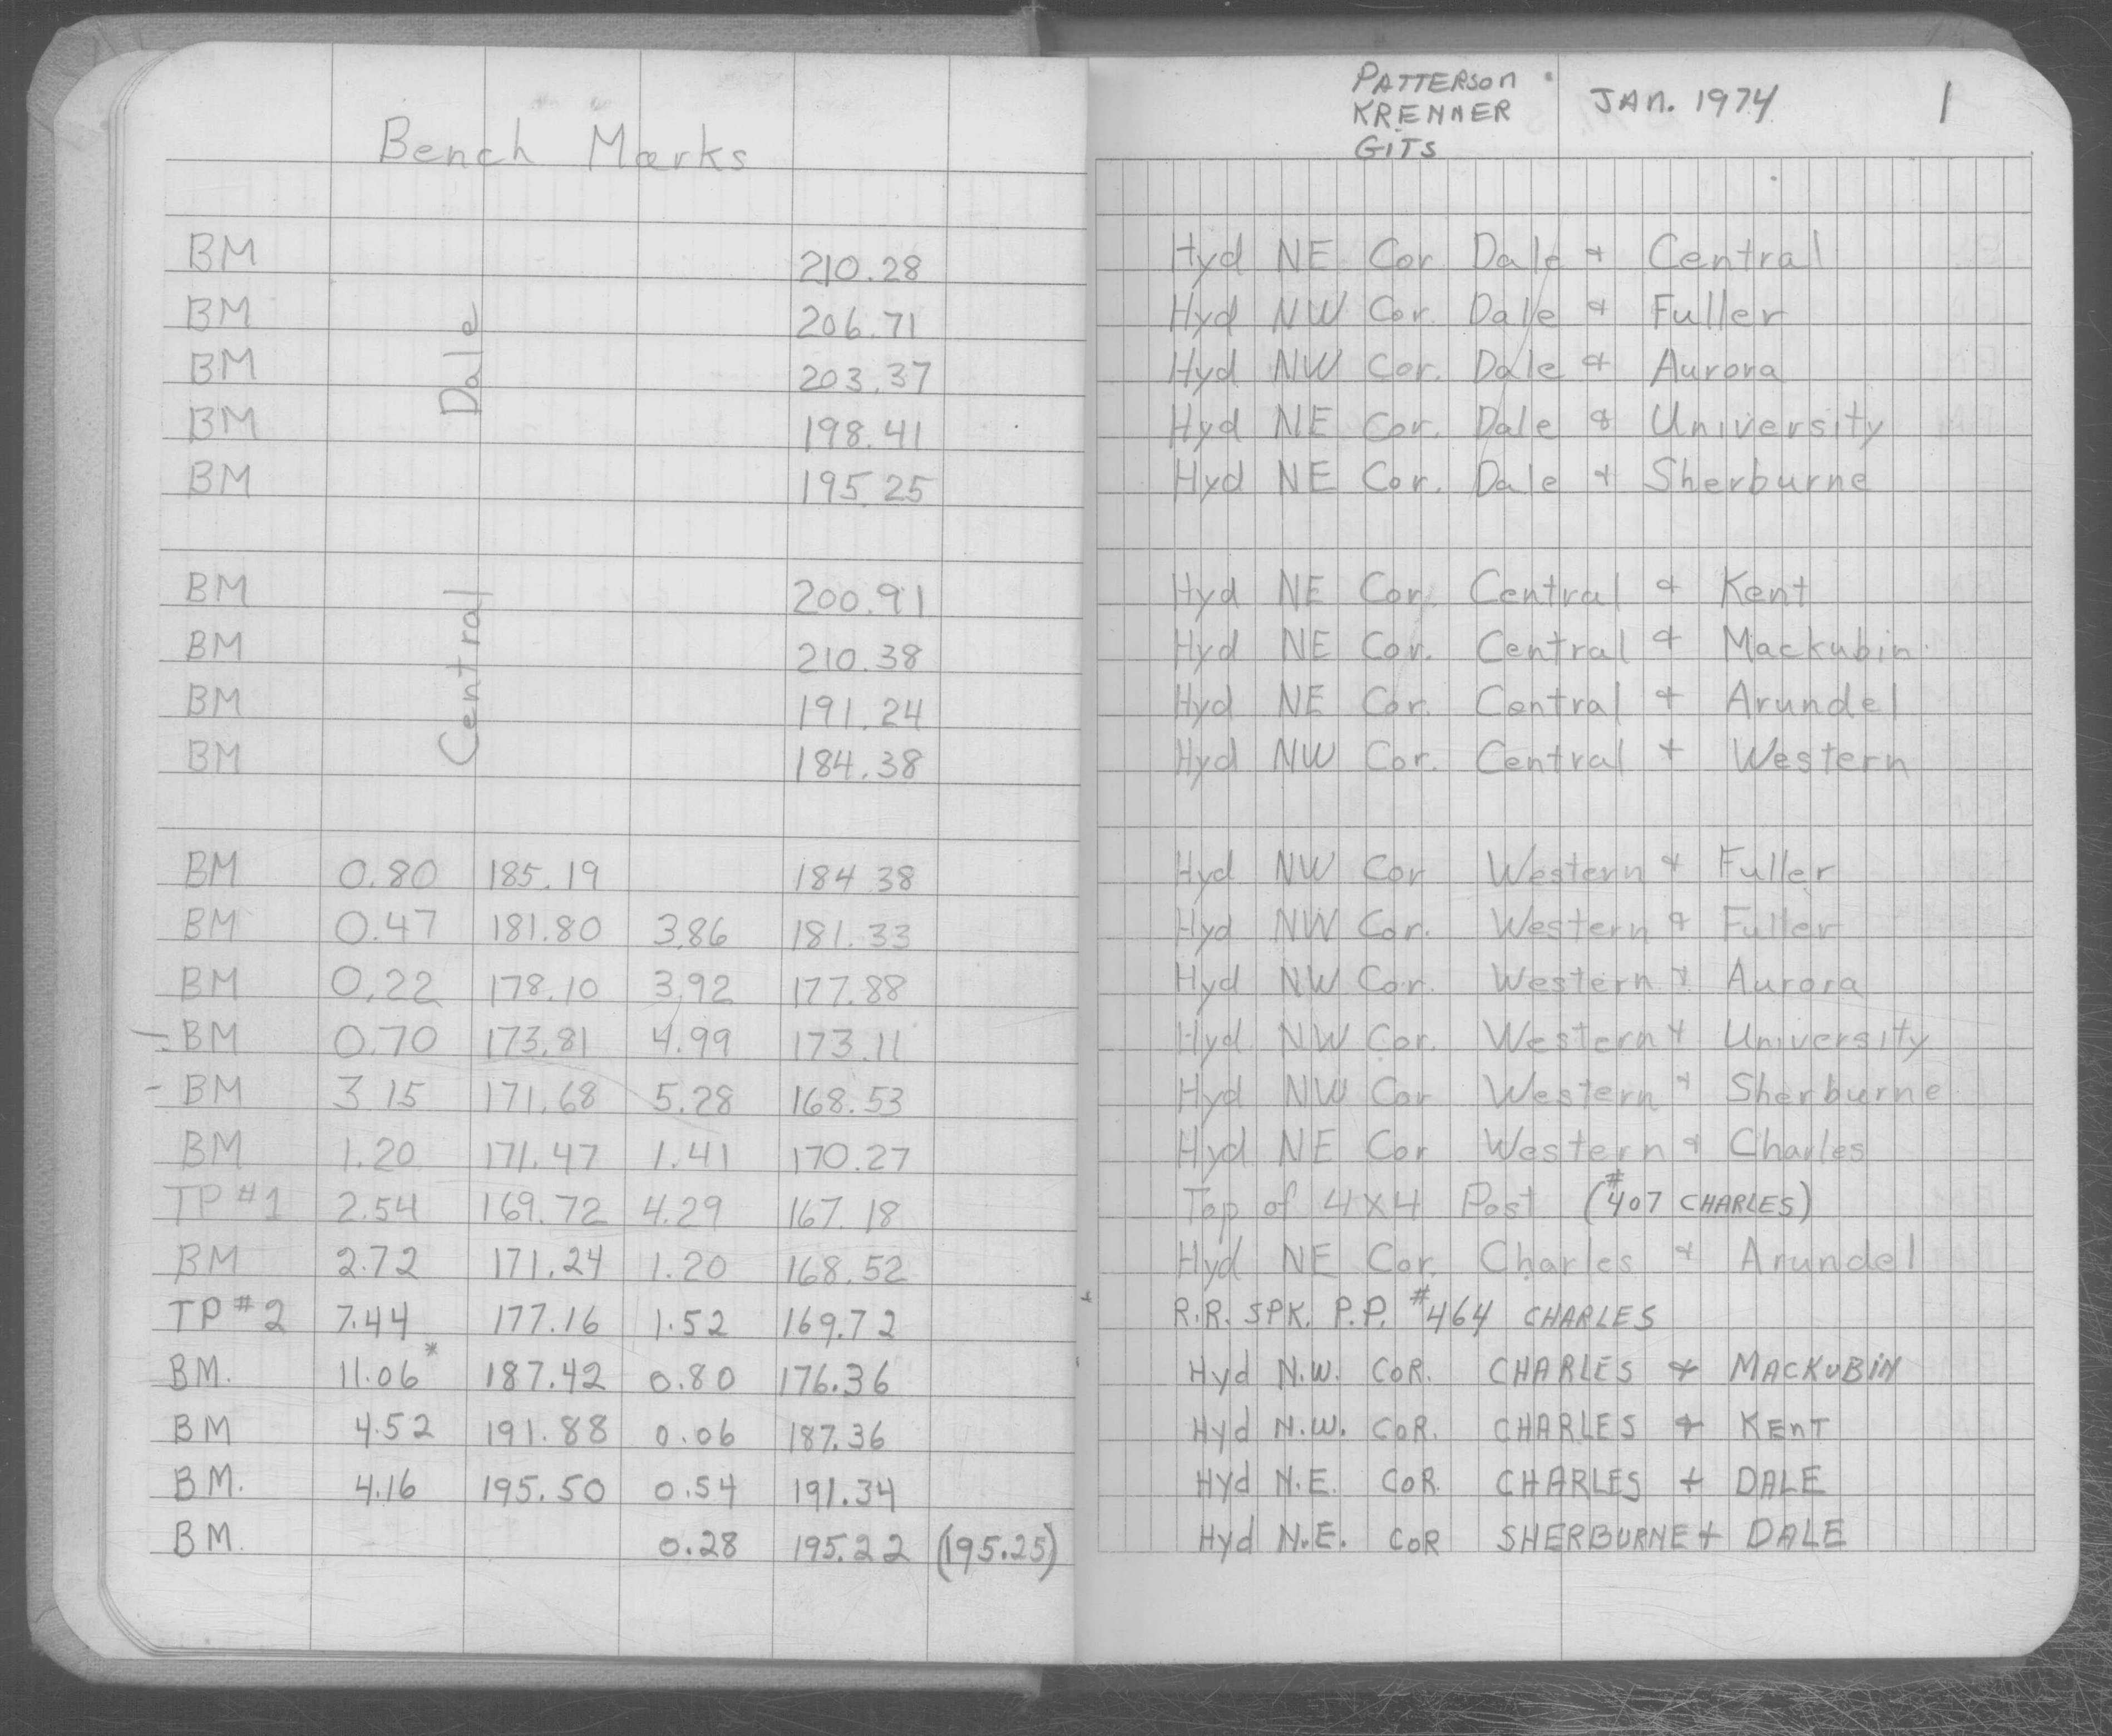 Bench Marks
PATTERSON
KRENNER
GITS
JAN. 1974
1
Dale
BM 210.28 Hyd NE Cor Dale & Central
BM 206.71 Hyd NW Cor. Dale & Fuller
BM 203.37 Hyd NW Cor. Dale & Aurora
BM 198.41 Hyd NE Cor. Dale & University
BM 195.25 Hyd NE Cor. Dale & Sherburne
Central
BM 200.91 Hyd NE Cor. Central & Kent
BM 210.38 Hyd NE Cor. Central & Mackubin
BM 191.24 Hyd NE Cor. Central & Arundel
BM 184.38 Hyd NW Cor. Central & Western
BM 0.80 185.19 184.38 Hyd NW Cor Western & Fuller
BM 0.47 181.80 3.86 181.33 Hyd NW Cor. Western & Fuller
BM 0.22 178.10 3.92 177.88 Hyd NW Cor. Western & Aurora
BM 0.70 173.81 4.99 173.11 Hyd NW Cor. Western & University
- BM 3.15 171.68 5.28 168.53 Hyd NW Cor Western & Sherburne
BM 1.20 171.47 1.41 170.27 Hyd NE Cor Western & Charles
TP #1 2.54 169.72 4.29 167.18 Top of 4x4 Post (#407 CHARLES)
BM 2.72 171.24 1.20 168.52 Hyd NE Cor. Charles & Arundel
TP #2 7.44 177.16 1.52 169.72 R.R. SPK. P.P. #464 CHARLES
BM. 11.06* 187.42 0.80 176.36 Hyd N.W. COR. CHARLES & MACKUBIN
BM 4.52 191.88 0.06 187.36 Hyd N.W. COR. CHARLES & KENT
BM. 4.16 195.50 0.54 191.34 Hyd N.E. COR. CHARLES + DALE
BM. 0.28 195.22 (195.25) Hyd N.E. COR SHERBURNE + DALE